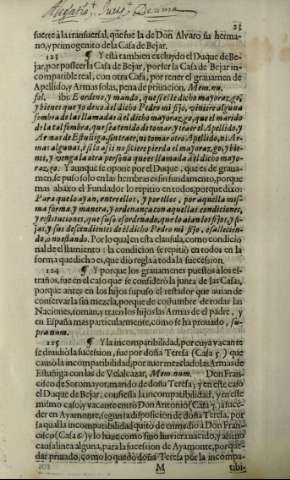 23
fuerte à la transuersal, que fue la de Don Alvaro su herma-
no, y primogenito de la Casa de Bejar.
123 ¶ Y està tambien excluydo el Duque de Be-
jar, por posseer la Casa de Bejar, y ser la Casa de Bejar in-
compatible real, con otra Casa, por tener el grauamen de
Apellido, y Armas solas, pena de priuacion, Mem. nu.
fol. ibi: E ordeno, y mando, que si el dicho mayorazgo,
y bienes que yo dexo al dicho Pedro mi fijo, viniere à alguna
fembra de las llamadas à el dicho mayorazgo, que el marido
de la tal fembra, que sea tenido de tomar, y traer el Apellido, y
Armas de Estuñiga, sin traer, ni tomar otro Apellido, ni Ar-
mas algunas, è si lo assi no ficiere pierda el mayorazgo, y bie-
nes, y venga à la otra persona que es llamada al dicho mayo-
razgo. Y aunque se opone por el Duque, que es de graua-
men, le puso solo en las hembras es sin fundamento, porque
mas abaxo el Fundador lo repitio en todos, porque dixo:
Para que lo ayan, entre ellos, y por ellos, por aquella mis-
ma forma, y manera, y ordenança con aquellas condiciones,
y restituciones, que suso es ordenado, que lo ayan los fijos, y fi-
jas, y sus descendientes de el dicho Pedro mi fijo, è fallecien-
do, ò no estando. Por lo qual en esta clausula, como condicio
nal de el llamamiento: la condicion se repitiò en todos en la
forma que dicho es, que diò regla à toda la sucession.
124 ¶ Y porque los grauamenes puestos à los es-
traños, fue en el caso que se considerò la junta de las Casas,
porque antes en los hijos supuso el testador que auian de
conservarla sin mezcla, porque de costumbre de todas las
Naciones, toman, y traen los hijos las Armas de el padre, y
en España mas particularmente, como se ha prouado, su-
pra num.
125 ¶ Y la incompatibilidad, por cuya vacante
se diuidiò la sucession, fue por doña Teresa (Casa 5.) que
causò la incompatibilidad, por auer mezclado las Armas de
Estuñiga con las de Velalcazar, Mem. num. Don Fran-
cisco de Sotomayor, marido de doña Teresa; y en este caso
el Duque de Bejar, confiessa la incompatibilidad, y en este
mismo caso, y vacante entrò Don Antonio (Casa 7.) à suce-
der en Ayamonte, segun la disposicion de doña Teresa, por
la qual la incompatibilidad quitò de en medio à Don Fran-
cisco (Casa 6.) y lo haze como si no huviera nacido, y assi no
causa linea alguna, para la sucession de Ayamonte, por que-
dar priuado, como lo quedò doña Teresa por la incompa-
M tibi-